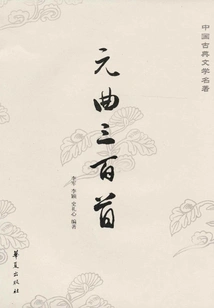 中国古典文学名著
元曲三百首
李军 李颖 史礼心 编著
华夏出版社